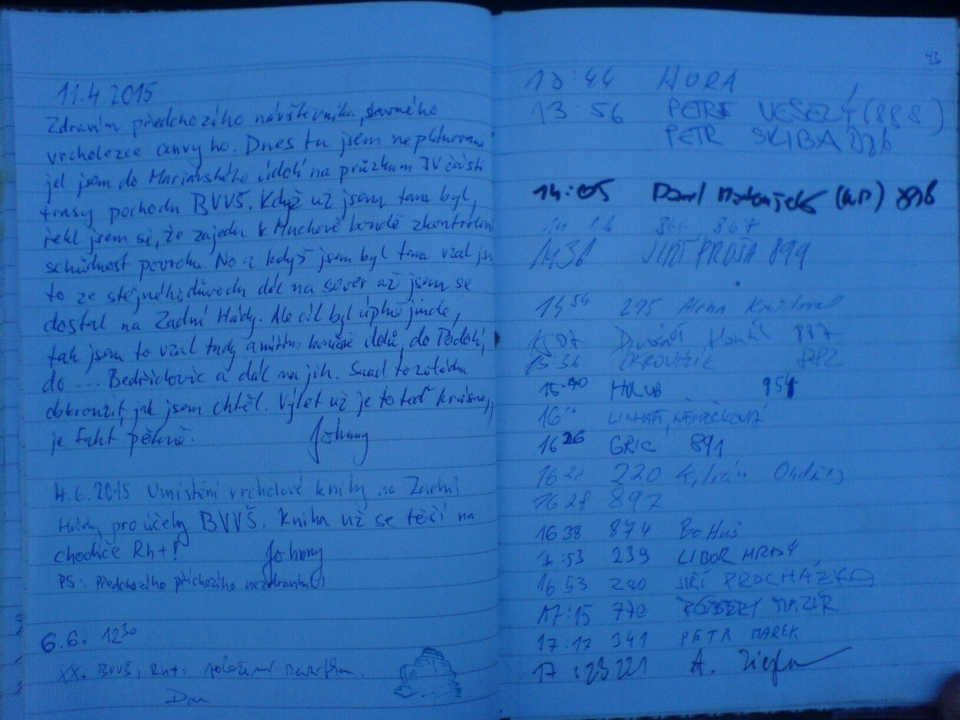 11.4 2015
Zdravím předchozího návštěvníka, slavného
vrcholezce Dnes tu jsem neplánovaně
jel jsem do Mariánského údolí na průzkum IV části
trasy pochodu BVVŠ. Když už jsem tam byl,
řekl jsem si, že zajedu k Muchově boudě zkontrolovat
schůdnost povrchu. No a když jsem byl tam vzal jsem
to ze stejného důvodu dál na sever až jsem se
dostal na Zadní Hády. Ale cíl byl úplně jinde,
tak jsem to vzal tudy a dolů, do Podolí,
do ... Bedřichovic a dál na jih. Snad to zvládnu
obkroužit jak jsem chtěl. Výlet už je to teď krásnej,
je fakt pěkně. Johnny
4.6.2015 Umístění vrcholové knihy na Zadní
Hády pro účely BVVŠ. Kniha už se těší na
chodiče Rh+! Johnny
PS: Předchozího příchozího nezdravím!
6.6. 12 30
XX. BVVŠ, Rh+: položení razítka
Dan
43
13:44 HORA
13:56 PETR VESELÝ (888)
PETR SKIBA 896
14:05 (N.P.) 896
867
1436 JIŘÍ PROSA 899
14 54 295 Alena
15 07 887
15:36 OKROUHLÍK 892
15:40 HOLUB 954
16
16 26 GRIC 891
16 22 220 Kilián Ondřej
16 28 897
16 38 874 BoHuš
16:53 239 LIBOR HRDÝ
16:53 240 JIŘÍ PROCHÁZKA
17:15 770 ROBERT MAZÚR
17:17 341 PETR MAREK
17:23 221 A.